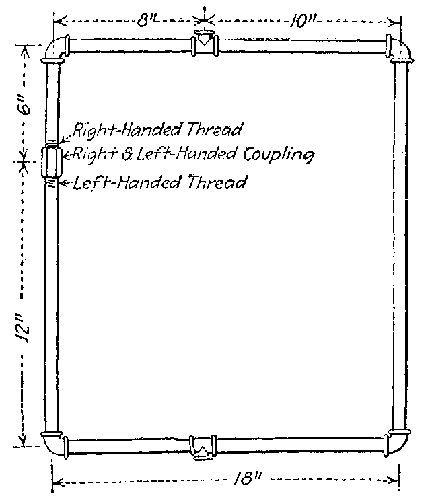 8"
10"
6"
Right-Handed Thread
Right & Left-Handed Coupling
Left-Handed Thread
12"
18"